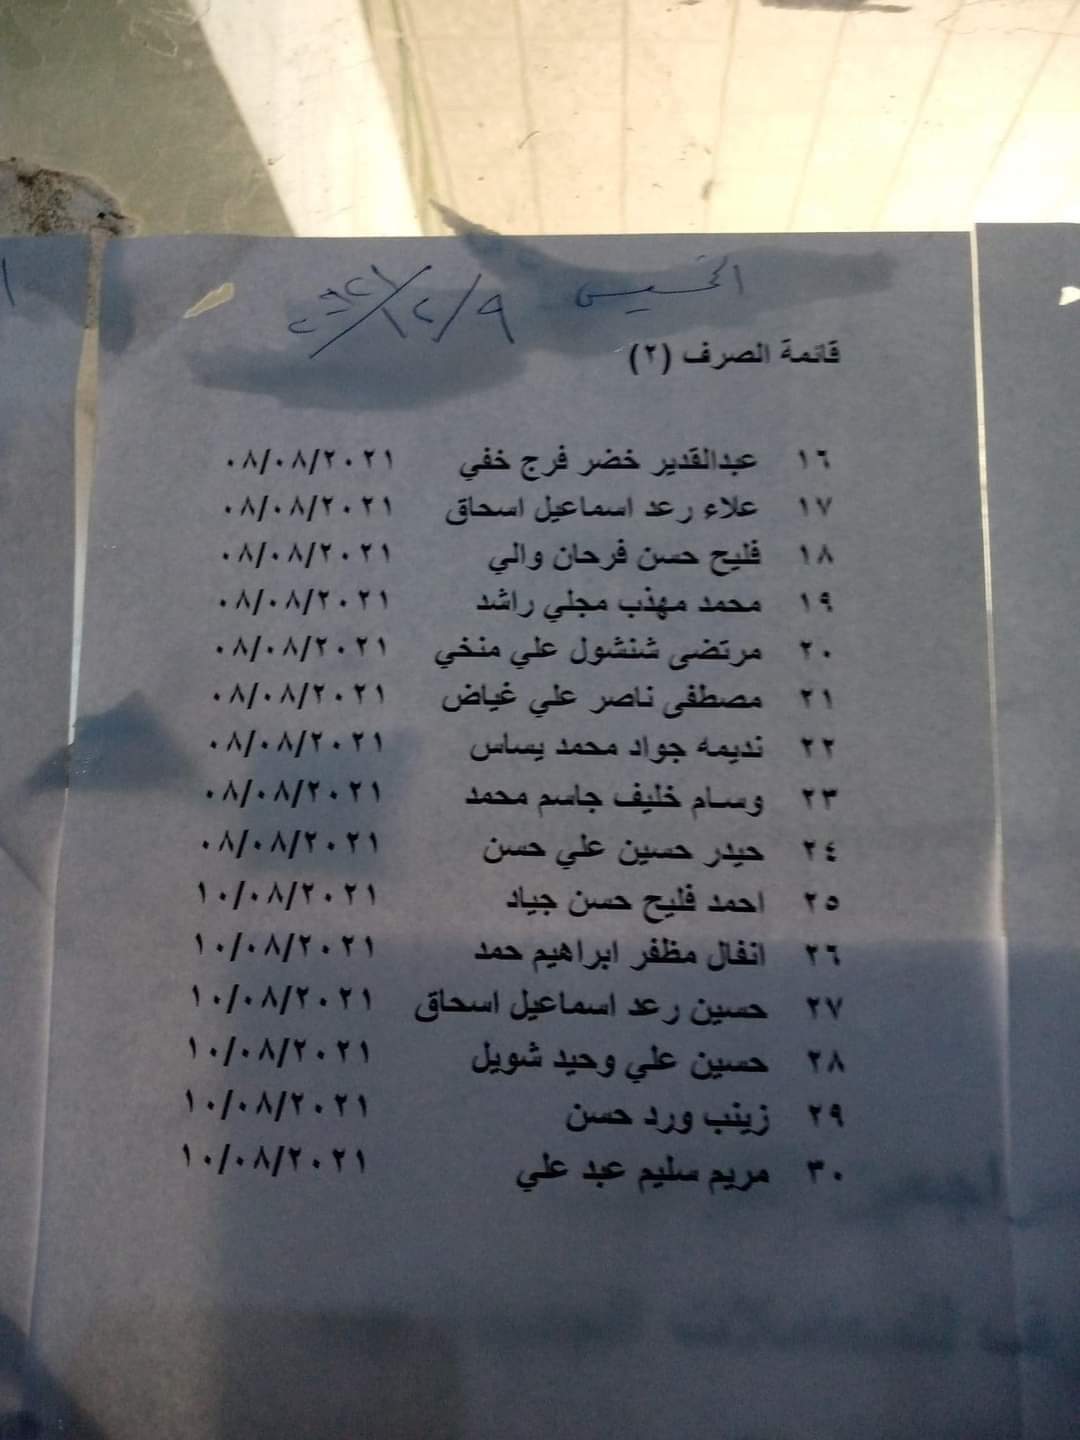 الخميس ٩/١٢/٢٠٢١
قائمة الصرف (٢)
١٦ عبدالقدير خضر فرج خفي ٠٨/٠٨/٢٠٢١
١٧ علاء رعد اسماعيل اسحاق ٠٨/٠٨/٢٠٢١
١٨ فليح حسن فرحان والي ٠٨/٠٨/٢٠٢١
١٩ محمد مهذب مجلي راشد ٠٨/٠٨/٢٠٢١
٢٠ مرتضى شنشول علي منخي ٠٨/٠٨/٢٠٢١
٢١ مصطفى ناصر علي غياض ٠٨/٠٨/٢٠٢١
٢٢ نديمه جواد محمد يساس ٠٨/٠٨/٢٠٢١
٢٣ وسام خليف جاسم محمد ٠٨/٠٨/٢٠٢١
٢٤ حيدر حسين علي حسن ٠٨/٠٨/٢٠٢١
٢٥ احمد فليح حسن جياد ١٠/٠٨/٢٠٢١
٢٦ انفال مظفر ابراهيم حمد ١٠/٠٨/٢٠٢١
٢٧ حسين رعد اسماعيل اسحاق ١٠/٠٨/٢٠٢١
٢٨ حسين علي وحيد شويل ١٠/٠٨/٢٠٢١
٢٩ زينب ورد حسن ١٠/٠٨/٢٠٢١
٣٠ مريم سليم عبد علي ١٠/٠٨/٢٠٢١